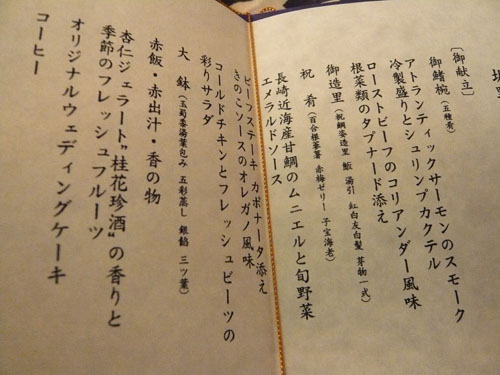 〔御献立〕
御鰭椀（五種肴）
アトランティックサーモンのスモーク
冷製盛りとシュリンプカクテル
ローストビーフのコリアンダー風味
根菜類のタプナード添え
御造里（祝鯛姿造里 鮪 湯引 紅白友白髪 芽物一式）
祝 肴（百合根茶巾 赤梅ゼリー 子宝海老）
長崎近海産甘鯛のムニエルと旬野菜
エメラルドソース
ビーフステーキ カポナータ添え
きのこソースのオレガノ風味
コールドチキンとフレッシュビーツの
彩りサラダ
大 鉢（玉蜀黍湯葉包み 五彩蒸し 銀餡 三ツ葉）
赤飯・赤出汁・香の物
杏仁ジェラート"桂花珍酒"の香りと
季節のフレッシュフルーツ
オリジナルウェディングケーキ
コーヒー